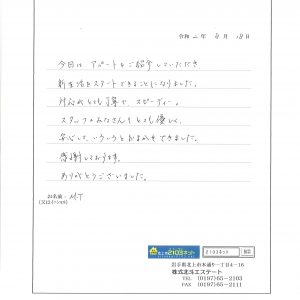 令和二年 9月 18日
今日は アパートをご紹介していただき
新生活をスタートできることになりました。
対応がとても丁寧で、スピーディー。
スタッフのみなさんもとても優しく、
安心して、いろいろとおまかせできました。
感謝しております。
ありがとうございました。
お名前: M.T
(又はイニシャル)
2103ネット
2103ネット 検索
岩手県北上市本通り一丁目4-16
株式北斗エステート
TEL (0197)65-2103
FAX (0197)65-2111